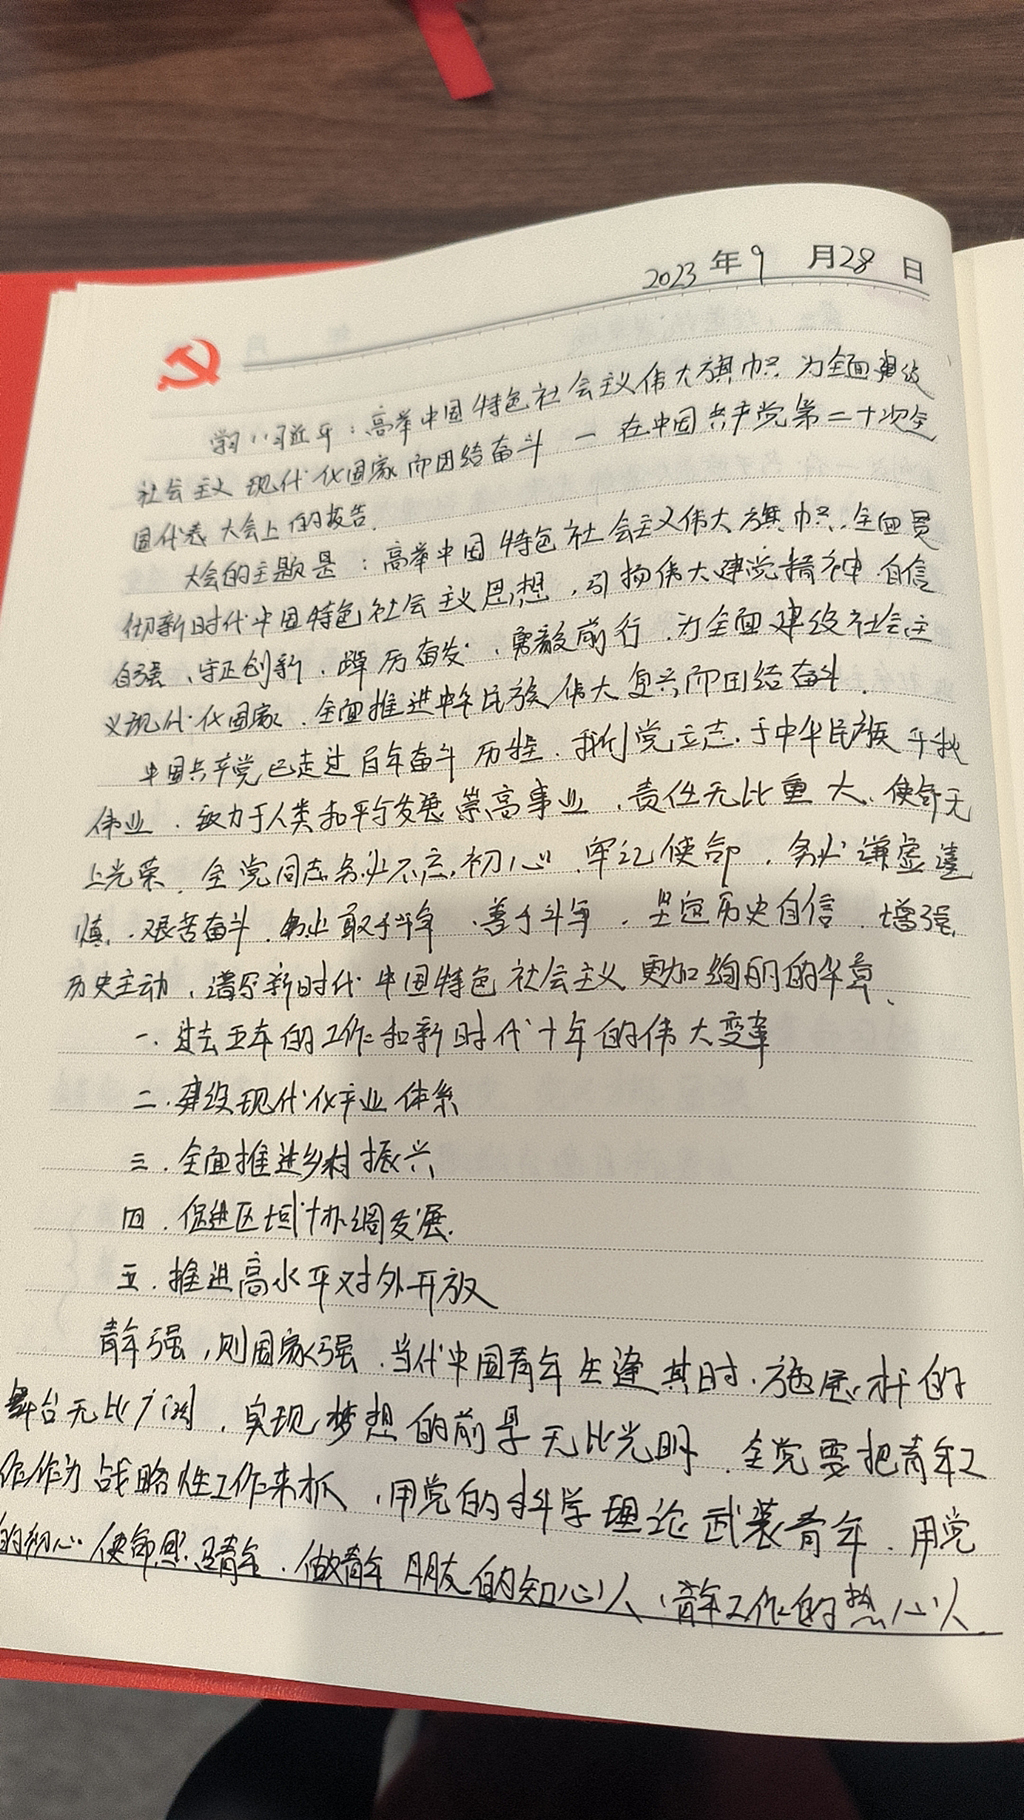 2023 年 9 月 28 日
学习习近平：高举中国特色社会主义伟大旗帜 为全面建设
社会主义现代化国家而团结奋斗 — 在中国共产党第二十次全
国代表大会上的报告.
大会的主题是：高举中国特色社会主义伟大旗帜.全面贯
彻新时代中国特色社会主义思想，弘扬伟大建党精神.自信
自强、守正创新、踔厉奋发、勇毅前行.为全面建设社会主
义现代化国家、全面推进中华民族伟大复兴而团结奋斗.
中国共产党已走过百年奋斗历程.我们党立志于中华民族千秋
伟业、致力于人类和平与发展崇高事业，责任无比重大、使命无
上光荣.全党同志务必不忘初心、牢记使命，务必谦虚谨
慎、艰苦奋斗、务必敢于斗争、善于斗争，坚定历史自信、增强
历史主动，谱写新时代中国特色社会主义更加绚丽的华章、
一.过去五年的工作和新时代十年的伟大变革
二.建设现代化产业体系
三.全面推进乡村振兴
四.促进区域协调发展.
五.推进高水平对外开放
青年强，则国家强.当代中国青年生逢其时.施展才的
舞台无比广阔，实现梦想的前景无比光明.全党要把青年工
作作为战略性工作来抓，用党的科学理论武装青年.用党
的初心使命感召青年.做青年朋友的知心人、青年工作的热心人.